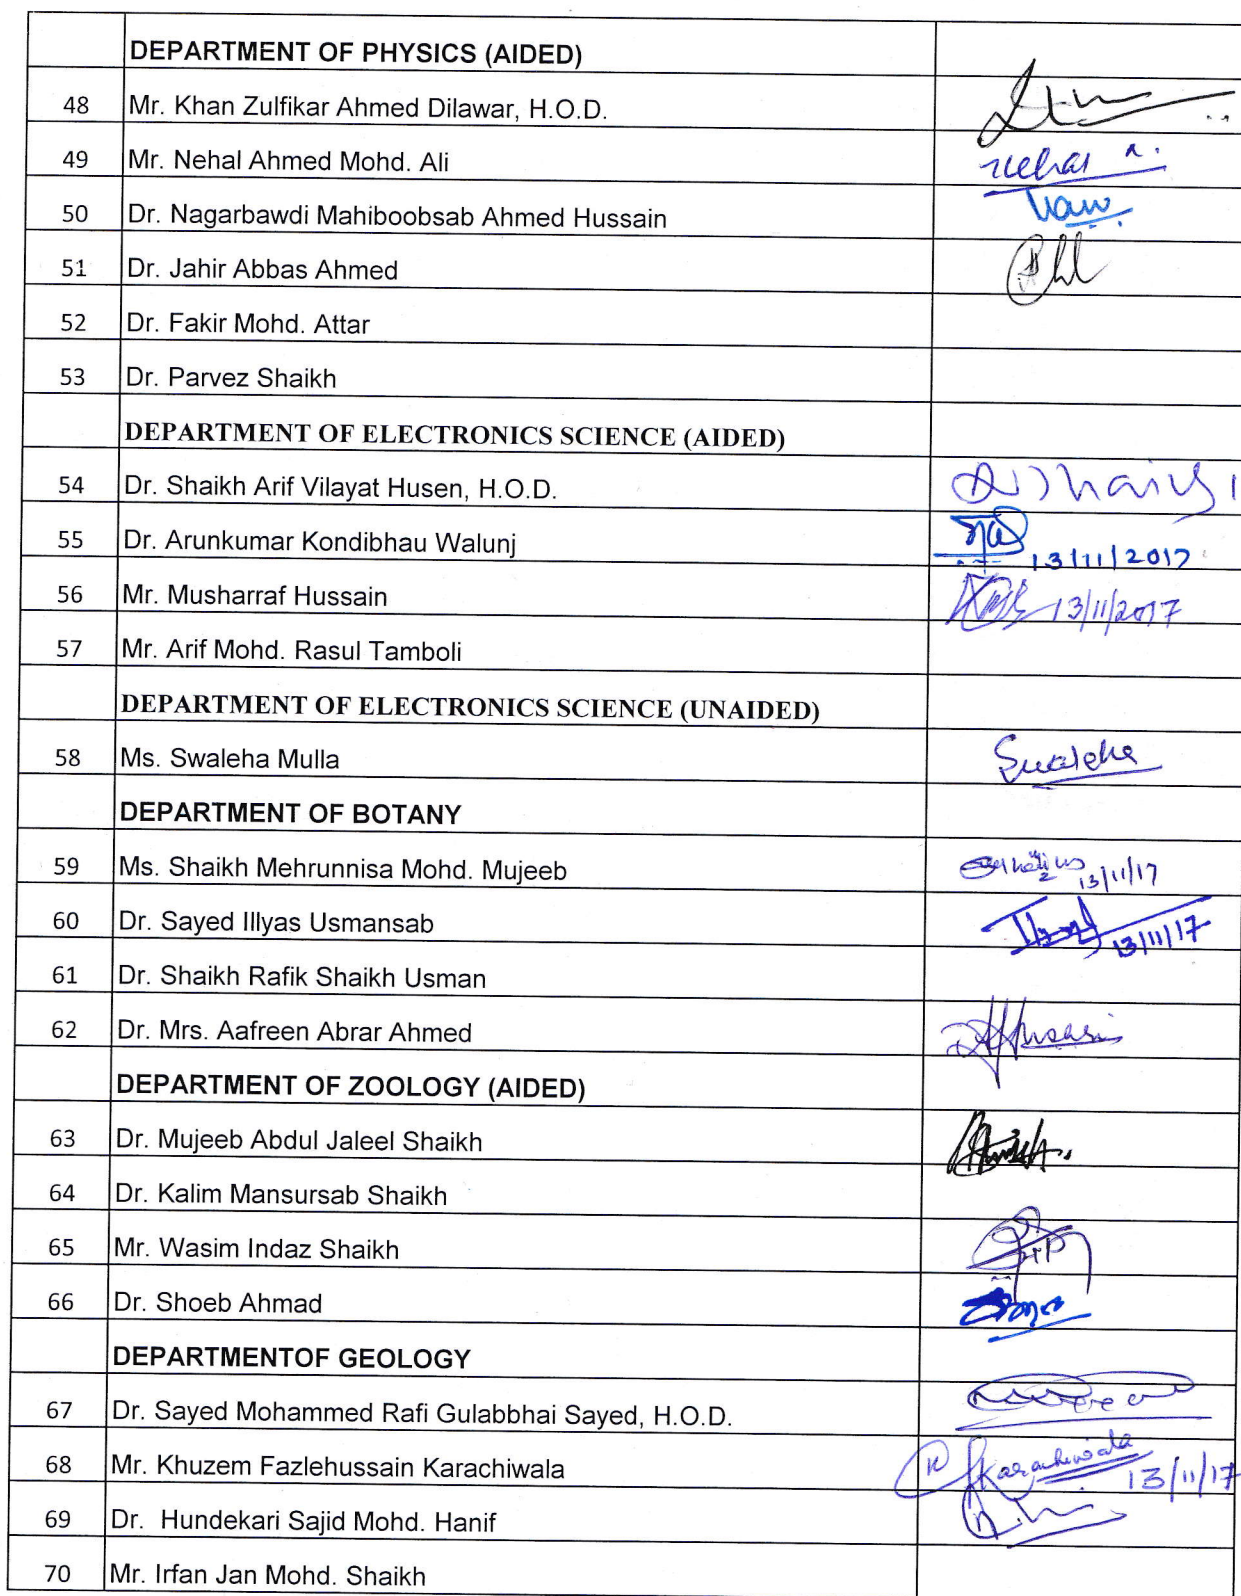 DEPARTMENT OF PHYSICS (AIDED)
48 Mr. Khan Zulfikar Ahmed Dilawar, H.O.D.
49 Mr. Nehal Ahmed Mohd. Ali
50 Dr. Nagarbawdi Mahiboobsab Ahmed Hussain
51 Dr. Jahir Abbas Ahmed
52 Dr. Fakir Mohd. Attar
53 Dr. Parvez Shaikh
DEPARTMENT OF ELECTRONICS SCIENCE (AIDED)
54 Dr. Shaikh Arif Vilayat Husen, H.O.D.
55 Dr. Arunkumar Kondibhau Walunj 13/11/2017
56 Mr. Musharraf Hussain 13/11/2017
57 Mr. Arif Mohd. Rasul Tamboli
DEPARTMENT OF ELECTRONICS SCIENCE (UNAIDED)
58 Ms. Swaleha Mulla Swaleha
DEPARTMENT OF BOTANY
59 Ms. Shaikh Mehrunnisa Mohd. Mujeeb 13/11/17
60 Dr. Sayed Illyas Usmansab 13/11/17
61 Dr. Shaikh Rafik Shaikh Usman
62 Dr. Mrs. Aafreen Abrar Ahmed
DEPARTMENT OF ZOOLOGY (AIDED)
63 Dr. Mujeeb Abdul Jaleel Shaikh
64 Dr. Kalim Mansursab Shaikh
65 Mr. Wasim Indaz Shaikh
66 Dr. Shoeb Ahmad
DEPARTMENTOF GEOLOGY
67 Dr. Sayed Mohammed Rafi Gulabbhai Sayed, H.O.D.
68 Mr. Khuzem Fazlehussain Karachiwala Karachiwala 13/11/17
69 Dr. Hundekari Sajid Mohd. Hanif
70 Mr. Irfan Jan Mohd. Shaikh